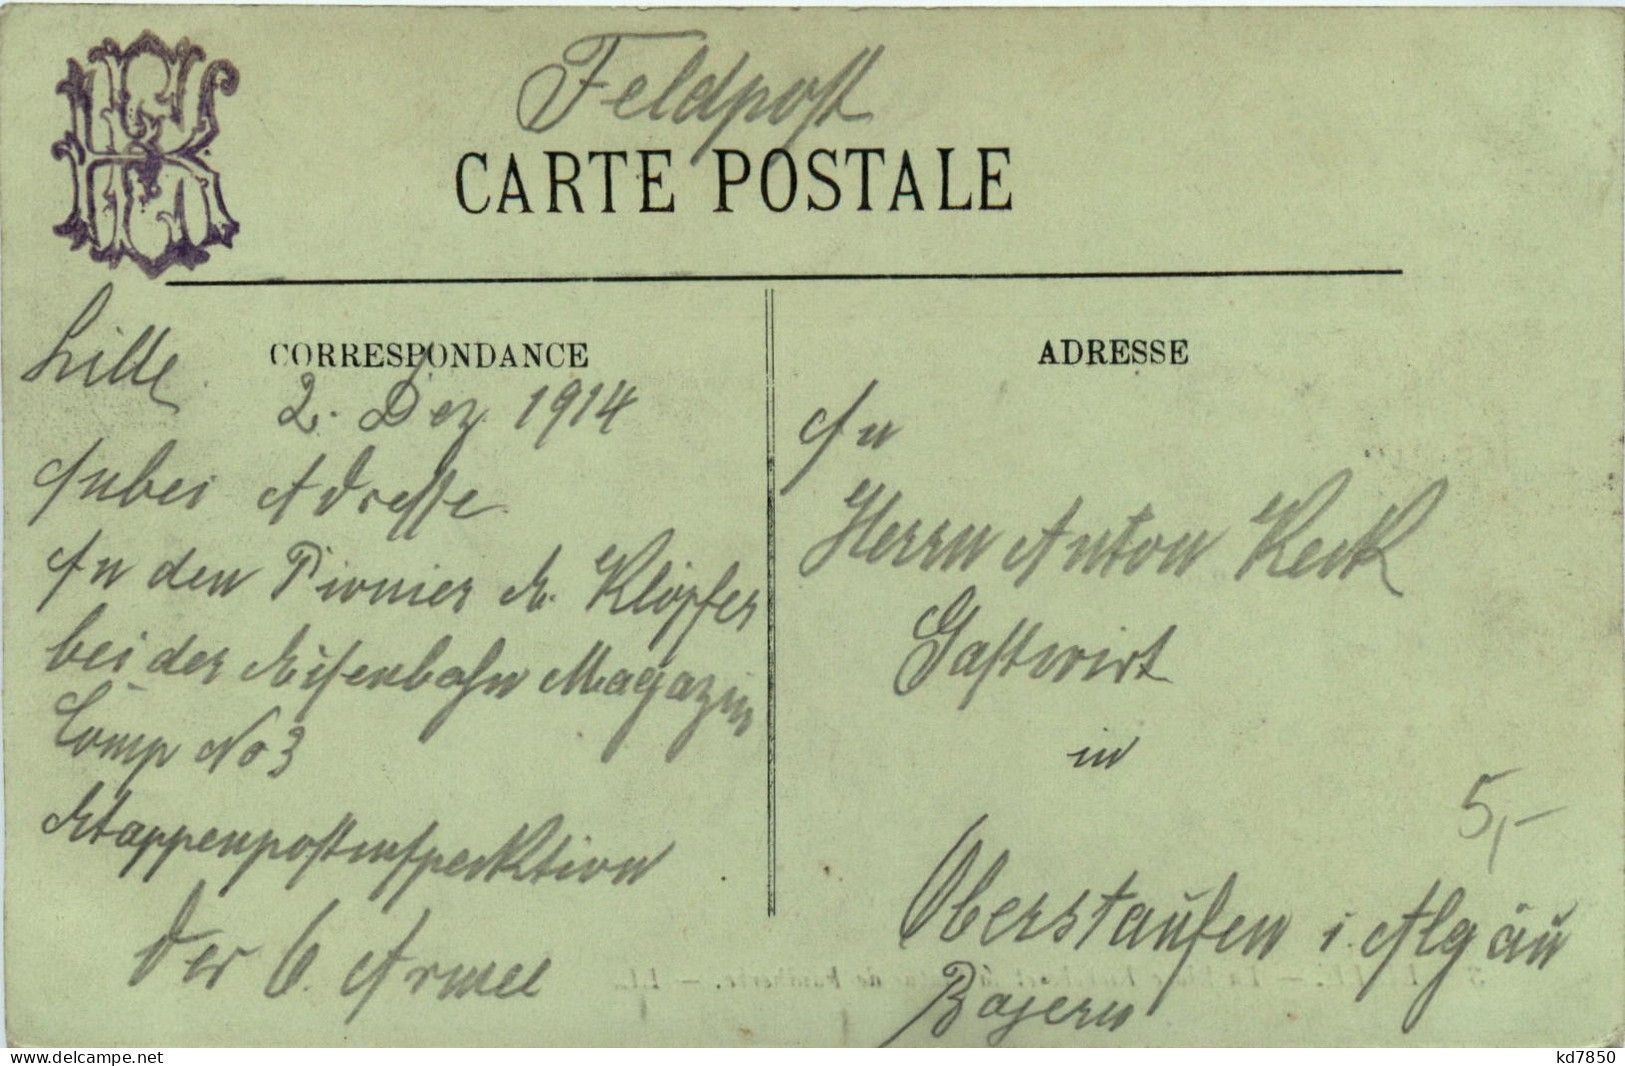 Feldpost
CARTE POSTALE
CORRESPONDANCE
Lille
2. Dez 1914
Anbei Adresse
An den Pionier A. Klöpfer
bei der Eisenbahn Magazin
Comp No 3
Etappenpostinspecktion
der 6. Armee
ADRESSE
An
Herrn Anton Keck
Gastwirt
in
Oberstaufen i. Algäu
Bayern
5,-
kd7850